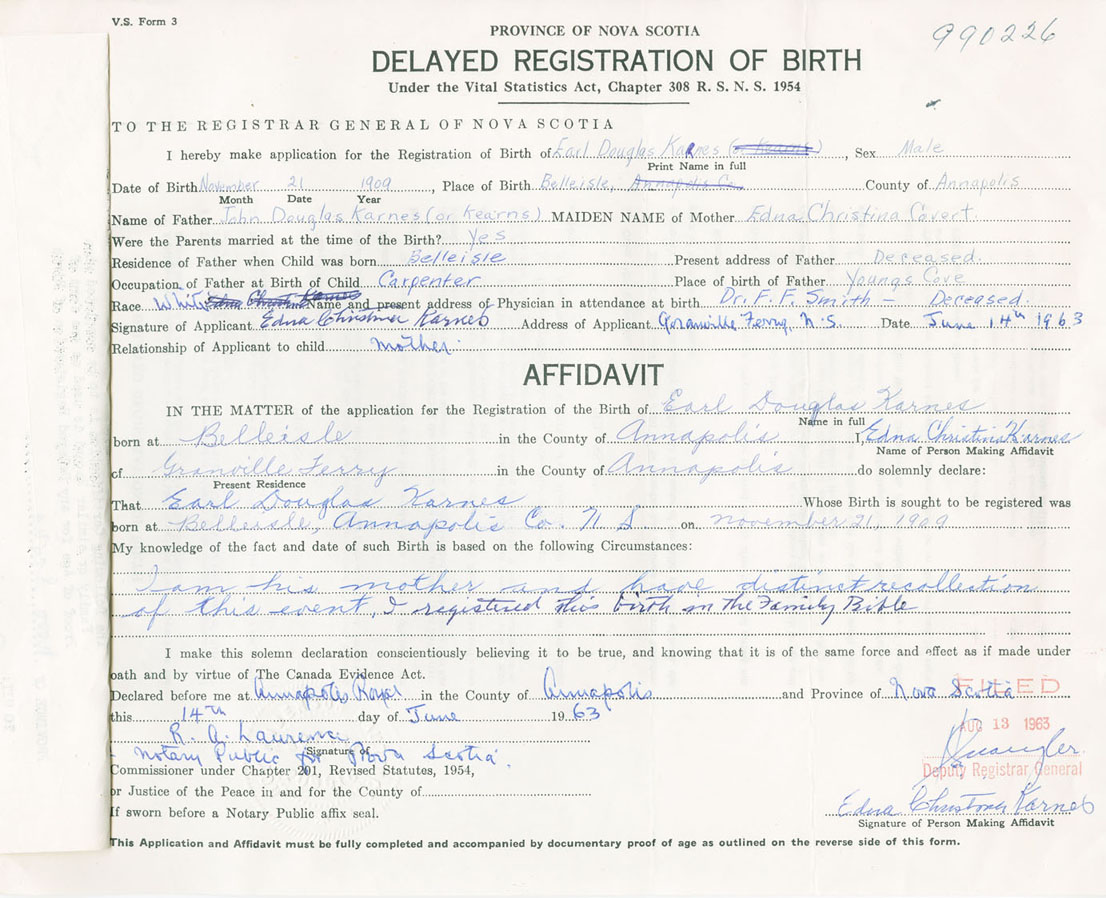 V.S. Form 3
PROVINCE OF NOVA SCOTIA
990226
DELAYED REGISTRATION OF BIRTH
Under the Vital Statistics Act, Chapter 308 R. S. N. S. 1954
TO THE REGISTRAR GENERAL OF NOVA SCOTIA
I hereby make application for the Registration of Birth of Earl Douglas Karnes (or Kearns), Sex Male
Print Name in full
Date of Birth November 21 1909, Place of Birth Belleisle, Annapolis Co. County of Annapolis
Month Date Year
Name of Father John Douglas Karnes (or Kearns) MAIDEN NAME of Mother Edna Christina Covert.
Were the Parents married at the time of the Birth? Yes
Residence of Father when Child was born Belleisle Present address of Father Deceased.
Occupation of Father at Birth of Child Carpenter Place of birth of Father Youngs Cove
Race White Edna Christina Karnes Name and present address of Physician in attendance at birth Dr. F. F. Smith – Deceased.
Signature of Applicant Edna Christina Karnes Address of Applicant Granville Ferry, N.S. Date June 14th 1963
Relationship of Applicant to child mother.
AFFIDAVIT
IN THE MATTER of the application for the Registration of the Birth of Earl Douglas Karnes
Name in full
born at Belleisle in the County of Annapolis I, Edna Christina Karnes
Name of Person Making Affidavit
of Granville Ferry in the County of Annapolis do solemnly declare:
Present Residence
That Earl Douglas Karnes Whose Birth is sought to be registered was
born at Belleisle, Annapolis Co. N S on november 21, 1909
My knowledge of the fact and date of such Birth is based on the following Circumstances:
I am his mother and have distinct recollection
of this event, I registered this birth in the Family Bible
I make this solemn declaration conscientiously believing it to be true, and knowing that it is of the same force and effect as if made under
oath and by virtue of The Canada Evidence Act.
Declared before me at Annapolis Royal in the County of Annapolis and Province of Nova Scotia
FILED
this 14th day of June 1963
AUG 13 1963
R. A. Laurence
Signature of
Notary Public for Nova Scotia.
Deputy Registrar General
Commissioner under Chapter 201, Revised Statutes, 1954,
or Justice of the Peace in and for the County of
Edna Christina Karnes
If sworn before a Notary Public affix seal.
Signature of Person Making Affidavit
This Application and Affidavit must be fully completed and accompanied by documentary proof of age as outlined on the reverse side of this form.